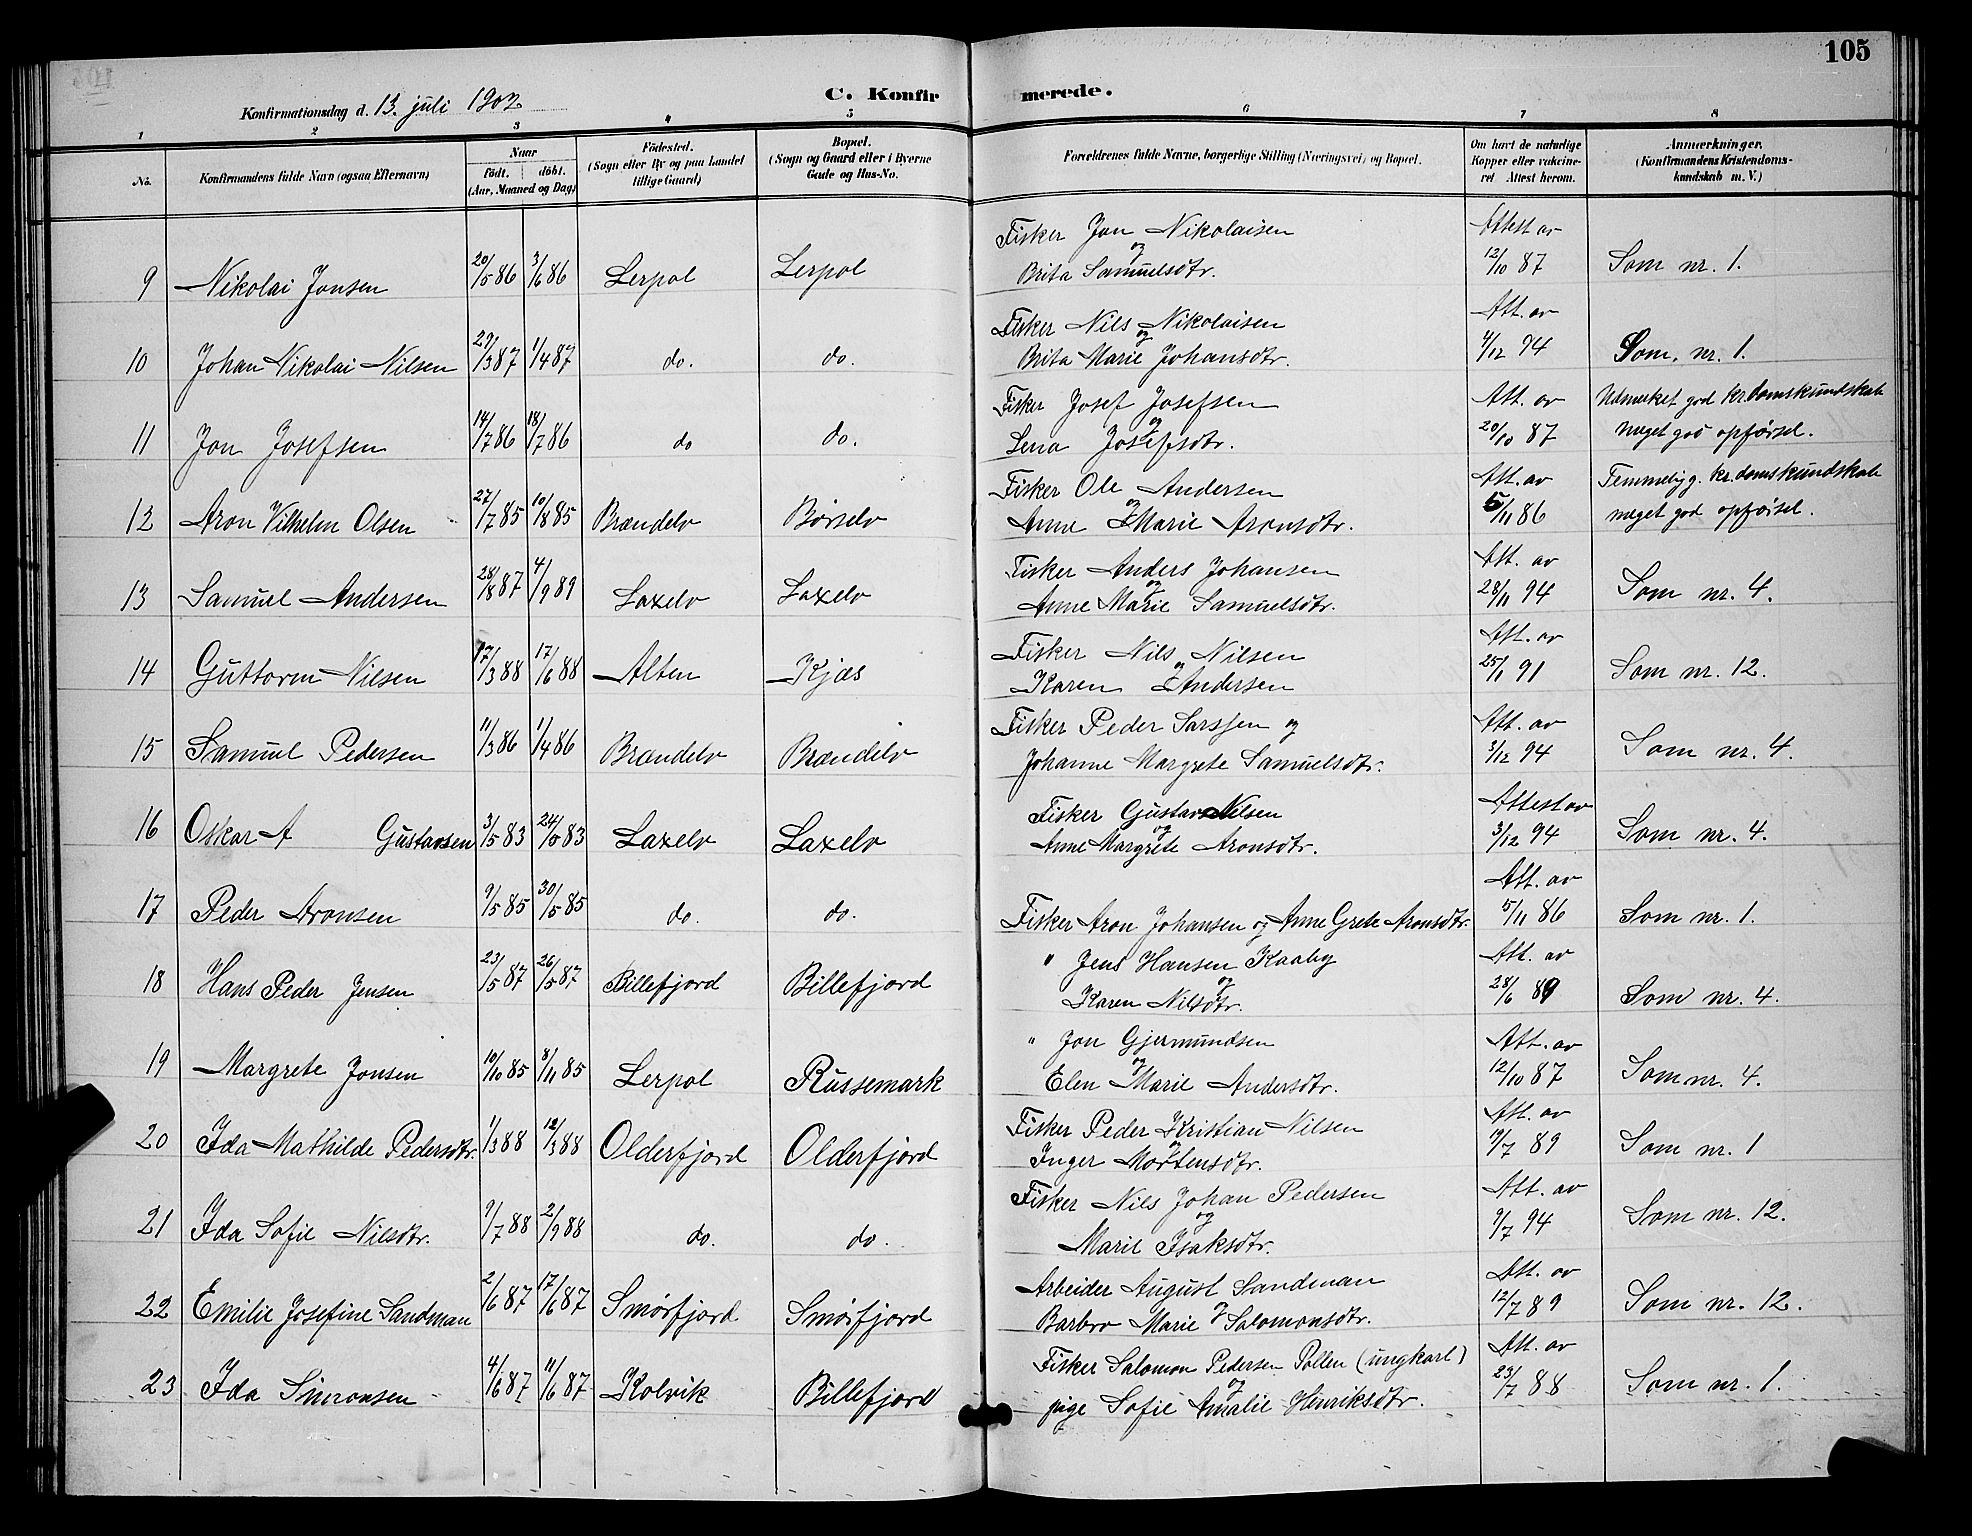 105
Konfirmationsdag d. 13. juli 1902
C. Konfirmerede.
1 2 3 4 5 6 7 8
No. Konfirmandens fulde Navn (ogsaa Efternavn) Naar födt. döbt. (Aar, Maaned og Dag) Födested. (Sogn eller By og paa Landet tillige Gaard) Bopæl. (Sogn og Gaard eller i Byerne Gade og Hus-No. Forældrenes fulde Navne, borgerlige Stilling (Næringsvei) og Bopæl. Om havt de naturlige Kopper eller vakcineret Attest herom. Anmærkninger. (Konfirmandens Kristendomskundskab m. V.)
Fisker Jon Nikolaisen Attest av
9 Nikolai Jonsen 20/5 86 3/6 86 Lerpol Lerpol og Brita Samuelsdtr. 12/10 87 Som nr. 1.
Fisker Nils Nikolaisen Att. av
10 Johan Nikolai Nilsen 29/3 87 1/4 87 do. do. og Brita Marie Johansdtr. 4/12 94 Som. nr. 1.
Fisker Josef Josefsen Att. av Udmerket god kr.domskundskab
11 Jon Josefsen 14/7 86 18/7 86 do do. og Lena Josefsdtr. 20/10 87 meget god opførsel.
Fisker Ole Andersen Att. av Temmelig g. kr.domskundskab
12 Aron Vilhelm Olsen 27/7 85 10/8 85 Brændelv Børselv og Anne Marie Aronsdtr. 5/11 86 meget god opførsel.
Fisker Anders Johansen Att. av
13 Samuel Andersen 28/8 87 4/9 89 Laxelv Laxelv og Anne Marie Samuelsdtr. 28/11 94 Som nr. 4.
Fisker Nils Nilsen Att. av
14 Guttorm Nilsen /3 88 17/6 88 Alten Kjæs og Karen Andersen 25/1 91 Som nr. 12.
Fisker Peder Sarssen og Att. av
15 Samuel Pedersen 11/3 86 1/4 86 Brændelv Brændelv Johanne Margrete Samuelsdtr. 3/12 94 Som nr. 4.
Fisker Gustav Nilsen Attest av
16 Oskar A Gustavsen 3/5 83 24/ 83 Laxelv Laxelv og Anne Margrete Aronsdtr. 3/12 94 Som nr. 4.
Att. av
17 Peder Aronsen 9/5 85 30/5 85 do. do. Fisker Aron Johansen og Anne Grete Aronsdtr. 5/11 86 Som nr. 1.
" Jens Hansen Kaaby Att. av
18 Hans Peder Jensen 23/5 87 26/5 87 Billefjord Billefjord og Karen Nilsdtr. 28/6 89 Som nr. 4.
" Jon Gjermundsen Att. av
19 Margrete Jonsen 10/10 85 8/11 85 Lerpol Russemark og Elen Marie Andersdtr. 12/10 87 Som nr. 4.
Fisker Peder Kristian Nilsen Att. av
20 Ida Mathilde Pedersdtr. 1/3 88 12/3 88 Olderfjord Olderfjord og Inger Mortensdtr. 9/7 89 Som nr. 1
Fisker Nils Johan Pedersen Att. av
21 Ida Sofie Nilsdtr. 9/7 88 2/9 88 do. do. og Marie Isaksdtr. 9/7 94 Som nr. 12.
Arbeider August Sandman Att. av
22 Emilie Josefine Sandman 2/6 87 17/6 87 Smørfjord Smørfjord og Barbro Marie Salomonsdtr. 12/7 89 Som nr. 12.
Fisker Salomon Pedersen Pollen (ungkarl) Att. av
23 Ida Simonsen 4/6 87 11/6 87 Kolvik Billefjord og pige Sofie Amalie Henriksdtr. 23/7 88 Som nr. 1.